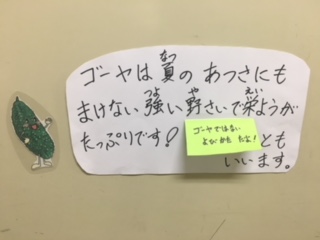 ゴーヤは夏のあつさにも
まけない強い野さいで栄ようが
たっぷりです!
ゴーヤではない
よびかただよ!
とも
いいます。
なつ
つよ
や
えい